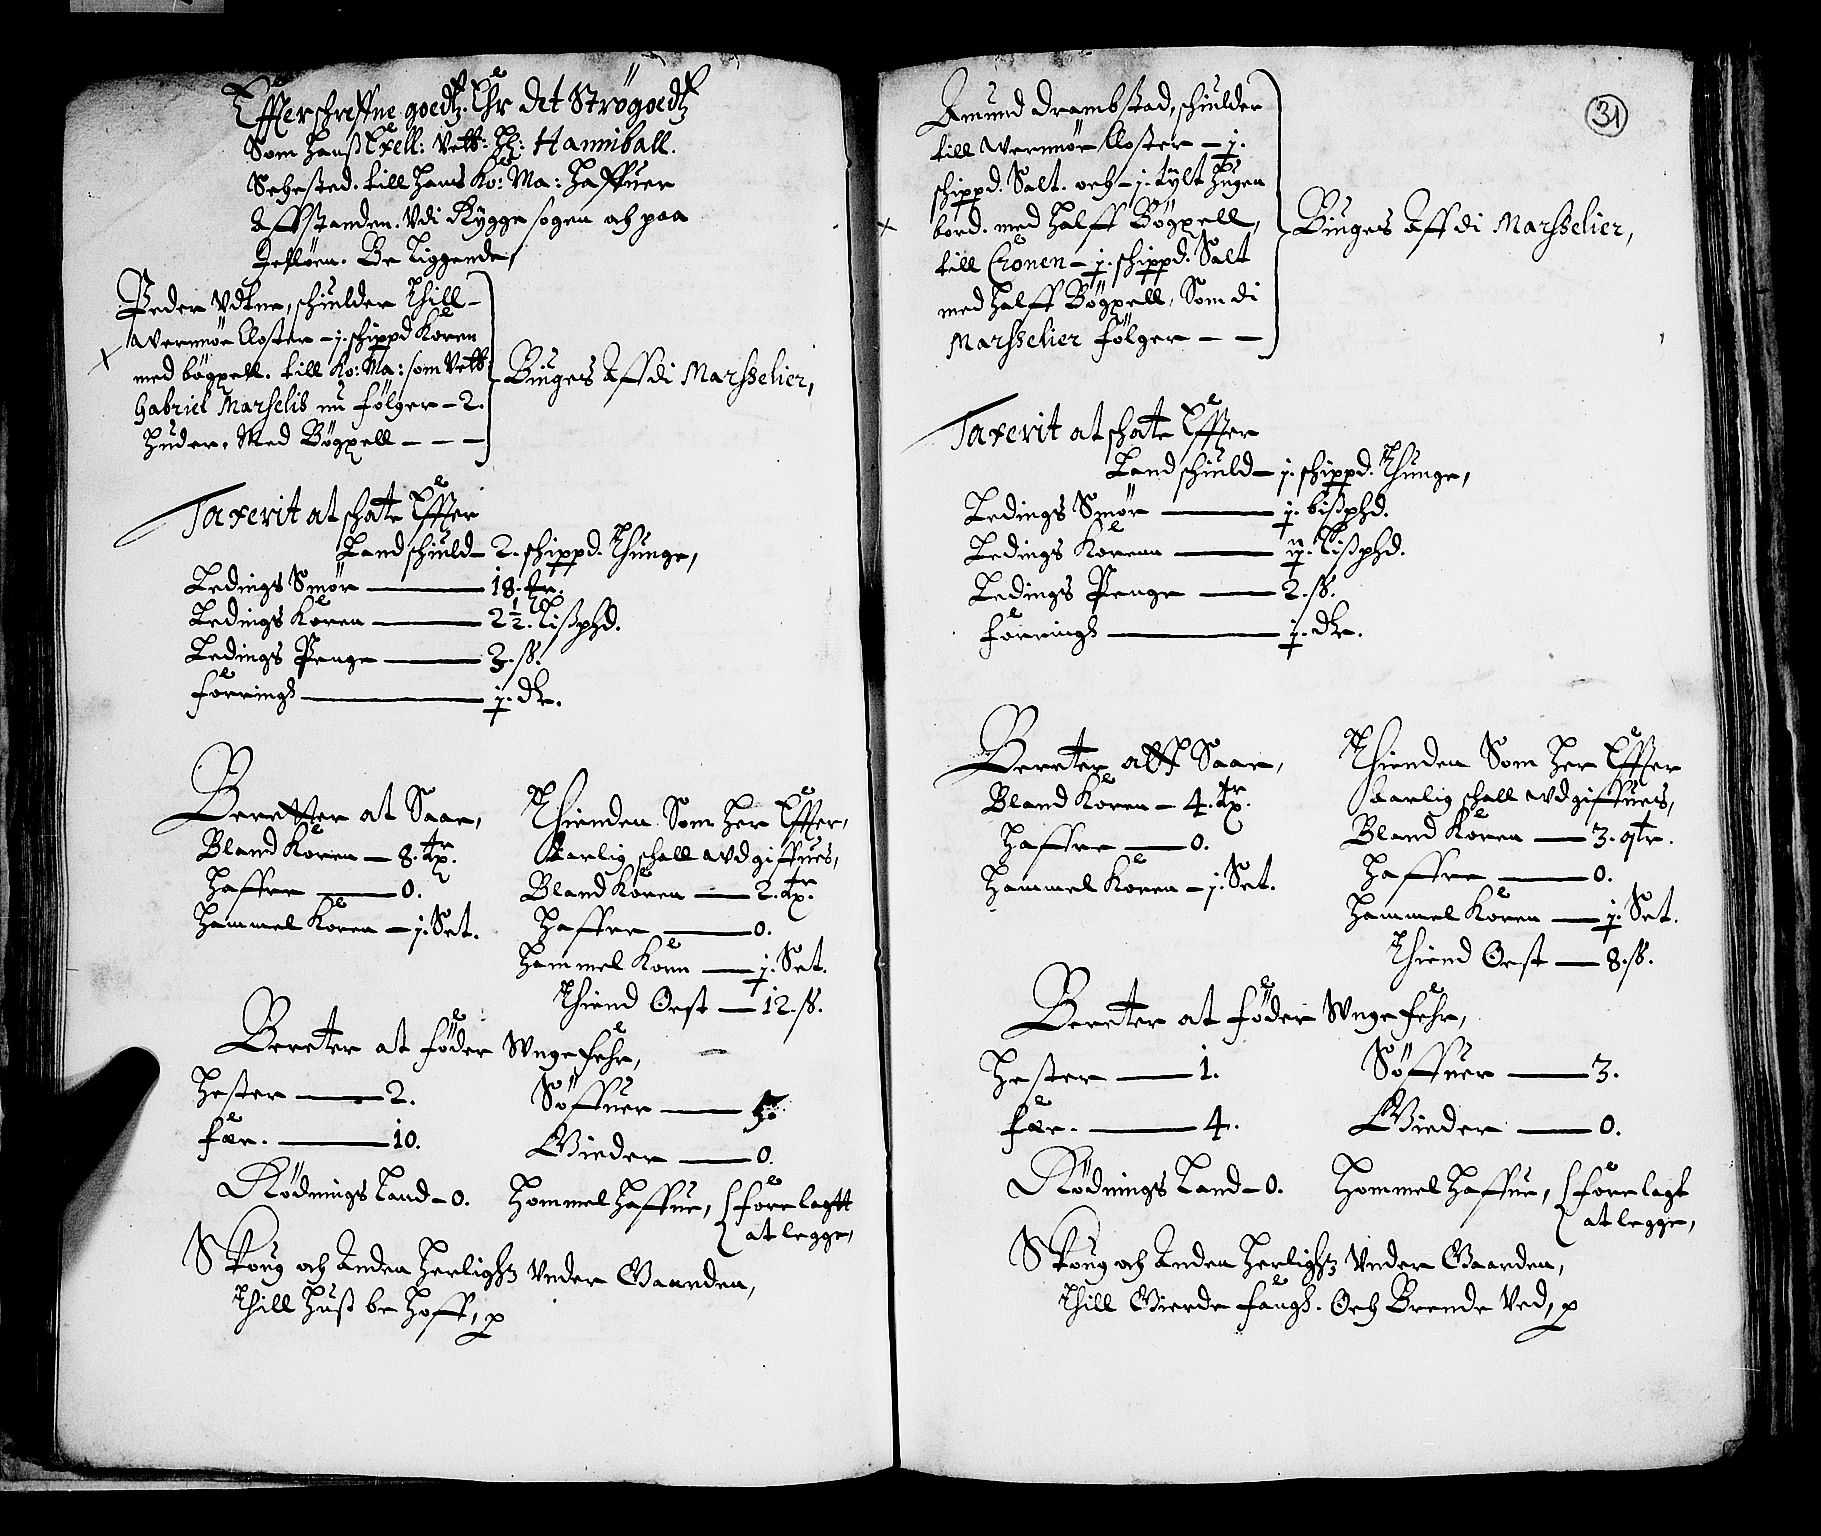 Effterschreffne goedtz. Ehr det Strögoedtz
Som hanß Excell: Velb: H: Hanniball.
Sehested. till hans Ko: Ma: haffuer
Affstanden. Vdi Rygge sogen och paa
Jelöen. Be Liggende,
Peder Vdkne, schiulder Thill
Wernnöe Closter – j. schippd Koren
med bögxell. till Ko: Ma: som Velb:
Gabriel Marselis nu følger – 2.
Huder. Med Bögxell – – –
Bruges Aff di Marsselier,
Taxerit at schatte Effter
Landschiuld – 2. schippd. Thunge,
Ledings Smör — 18. mr.
Ledings Koren — 2½. Lißphd.
Ledings Penge — 3. ß.
Forringh — j. dlr.
Beretter at Saae,
Bland Koren – 8. tr.
Haffre — 0.
Hammel Koren – j. Set.
Thienden Som her Effter,
Aarlig schall Wdgiffues,
Bland Koren — 2. tr.
Haffre — 0.
Hammel Korn — j. Set.
Thiend Oest — 12. ß.
Bereter at föder Wngefehr,
Hester — 2.
Söffuer — 5.
Fæe. — 10.
Gieder — 0.
Rödnings Land – 0.
Hommel Haffue, forelagtt
at legge,
Skoug och Anden Herlighz Vnder Gaarden,
Thill Huß be Hoff, p
31
Amund Drambstad, schiulder
till Wernnör Closter – j.
schippd. Salt. och – j. tylt Hugen
bord. med halff Bögxell,
till Cronen – j. schippd. Salt
med halff Bögxell, Som di
Marsselier følger – –
Bruges Aff di Marsselier,
Taxerit at schatte Effter
Landschuld – j. schippd. Thunge,
Ledings Smör — j. bißphd.
Ledings Korenn — ij. Lißphd.
Ledings Penge — 2. ß.
Forringh — j. dlr.
Bereter att Saae,
Bland Koren – 4. tr.
Haffre — 0.
Hammel Koren – j. Set.
Thienden Som her Effter
Aarlig schall Wdgiffues,
Bland Koren — 3. qtr.
Haffre — 0.
Hammel Koren — j. Set.
Thiend Oest — 8. ß.
Bereter at föder Wngefehr,
Hester — 1.
Söffuer — 3.
Fæe. — 4.
Gieder — 0.
Rödnings Land – 0.
Hommel Haffue, forelagt
at legge,
Skoug och Anden Herlighz Vnder Gaarden,
Thill Gierde fangh. Och Brende Ved, p